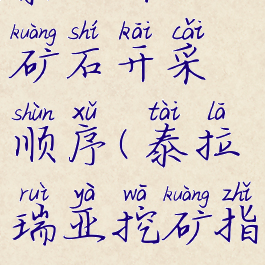 kuàng shí kāi cǎi
矿石开采
shùn xǔ tài lā
顺序(泰拉
ruì yà wā kuàng zhǐ
瑞亚挖矿指